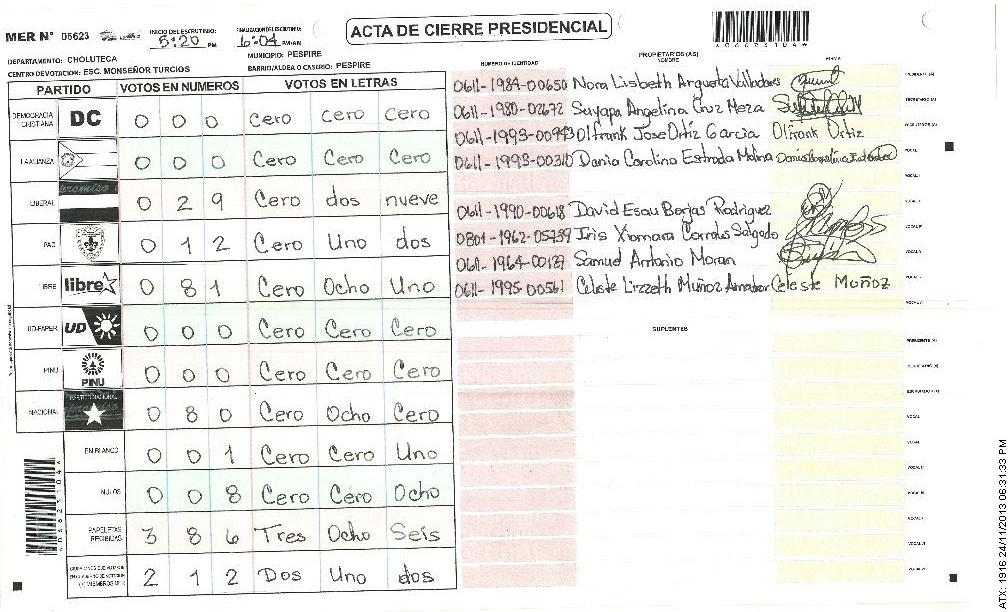 ACTA DE CIERRE PRESIDENCIAL
MER N° 06623
INICIO DEL ESCRUTINIO: 5:20 PM
FINALIZACION DEL ESCRUTINIO: 6:04 PM/AM
*06623104*
DEPARTAMENTO: CHOLUTECA
MUNICIPIO: PESPIRE
CENTRO DE VOTACION: ESC. MONSEÑOR TURCIOS
BARRIO/ALDEA O CASERIO: PESPIRE
PARTIDO VOTOS EN NUMEROS VOTOS EN LETRAS
DEMOCRACIA CRISTIANA DC 0 0 0 Cero Cero Cero
LA ALIANZA 0 0 0 Cero Cero Cero
LIBERAL 0 2 9 Cero dos nueve
PAC 0 1 2 Cero Uno dos
LIBRE libre 0 8 1 Cero Ocho Uno
UD-FAPER UD 0 0 0 Cero Cero Cero
PINU PINU 0 0 0 Cero Cero Cero
NACIONAL PARTIDO NACIONAL 0 8 0 Cero Ocho Cero
EN BLANCO 0 0 1 Cero Cero Uno
NULOS 0 0 8 Cero Cero Ocho
PAPELETAS RECIBIDAS 3 8 6 Tres Ocho Seis
2 1 2 Dos Uno dos
*06623104*
PROPIETARIOS (AS)
NUMERO DE IDENTIDAD NOMBRE FIRMA
0611-1984-00650 Nora Lisbeth Argueta Valladares PRESIDENTE (A)
0611-1980-02672 Suyapa Angelina Cruz Meza SECRETARIO (A)
0611-1993-00943 Olfrank Jose Ortiz Garcia Olfrank Ortiz ESCRUTADOR (A)
0611-1993-00310 Dania Carolina Estrada Molina VOCAL I
0611-1990-00618 David Esau Borjas Rodriguez
0801-1962-05739 Iris Xiomara Corrales Salgado
0611-1964-00129 Samuel Antonio Moran
0611-1995-00561 Celeste Lizzeth Muñoz Amador Celeste Muñoz
SUPLENTES
PRESIDENTE (A)
SECRETARIO (A)
ESCRUTADOR (A)
ATX: 1916 24/11/2013 06:31:33 PM